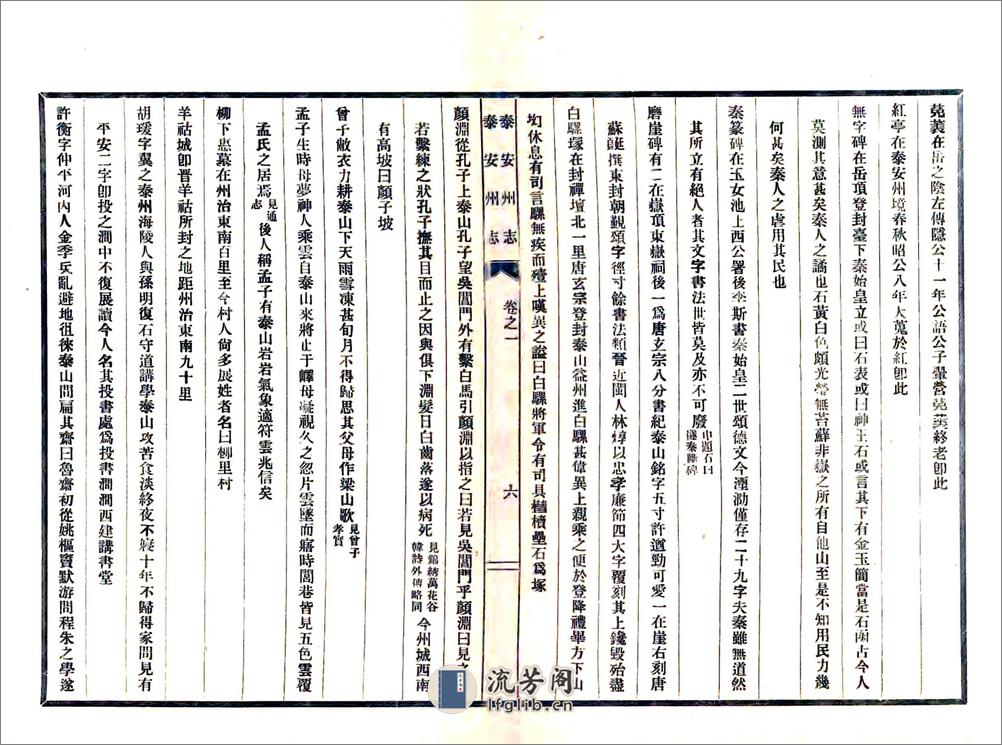 菟裘在岳之陰左傳隱公十一年公語公子翬營菟裘終老卽此
紅亭在泰安州境春秋昭公八年大蒐於紅卽此
無字碑在岳頂登封臺下秦始皇立或曰石表或曰神主石或言其下有金玉簡當是石函占今人
莫測其意甚矣秦人之譎也石黃白色頗光瑩無苔蘚非嶽之所有自他山至是不知用民力幾
何甚矣秦人之虐用其民也
秦篆碑在玉女池上西公署後李斯書秦始皇二世頌德文今湮泐僅存二十九字夫秦雖無道然
其所立有絕人者其文字書法世皆莫及亦不可廢
磨崖碑有二在嶽頂東嶽祠後一爲唐玄宗八分書紀泰山銘字五寸許遒勁可愛一在崖右刻唐
蘇頲撰東封朝覲頌字徑寸餘書法類晉近閩人林焞以忠孝廉節四大字覆刻其上鑱毀殆盡
白騾塚在封禪壇北一里唐玄宗登封泰山益州進白騾甚偉異上親乘之便於登降禮畢方下山
坳休息有司言騾無疾而殪上嘆異之諡曰白騾將軍令有司具櫝壘石爲塚
泰安州志
泰安州志
卷之一
六
顏淵從孔子上泰山孔子望吳閶門外有繫白馬引顏淵以指之曰若見吳閶門乎顏淵曰見之
若繫練之狀孔子撫其目而止之因與俱下淵髮日白齒落遂以病死
見錦綉萬花谷
韓詩外傳略同
今州城西南
有高坡曰顏子坡
曾子敝衣力耕泰山下天雨雪凍甚旬月不得歸思其父母作梁山歌
見曾子
孝實
孟子生時母夢神人乘雲自泰山來將止于嶧母凝視久之忽片雲墜而寤時閭巷皆見五色雲覆
孟氏之居焉
見通
志
後人稱孟子有泰山岩岩氣象適符雲兆信矣
柳下惠墓在州治東南百里至今村人尙多展姓者名曰柳里村
羊祜城卽晉羊祜所封之地距州治東南九十里
胡瑗字翼之泰州海陵人與孫明復石守道講學泰山攻苦食淡終夜不寢十年不歸得家問見有
平安二字卽投之澗中不復展讀今人名其投書處爲投書澗澗西建講書堂
許衡字仲平河內人金季兵亂避地徂徠泰山間扁其齋曰魯齋初從姚樞竇默游問程朱之學遂
流芳阁
lfglib.cn